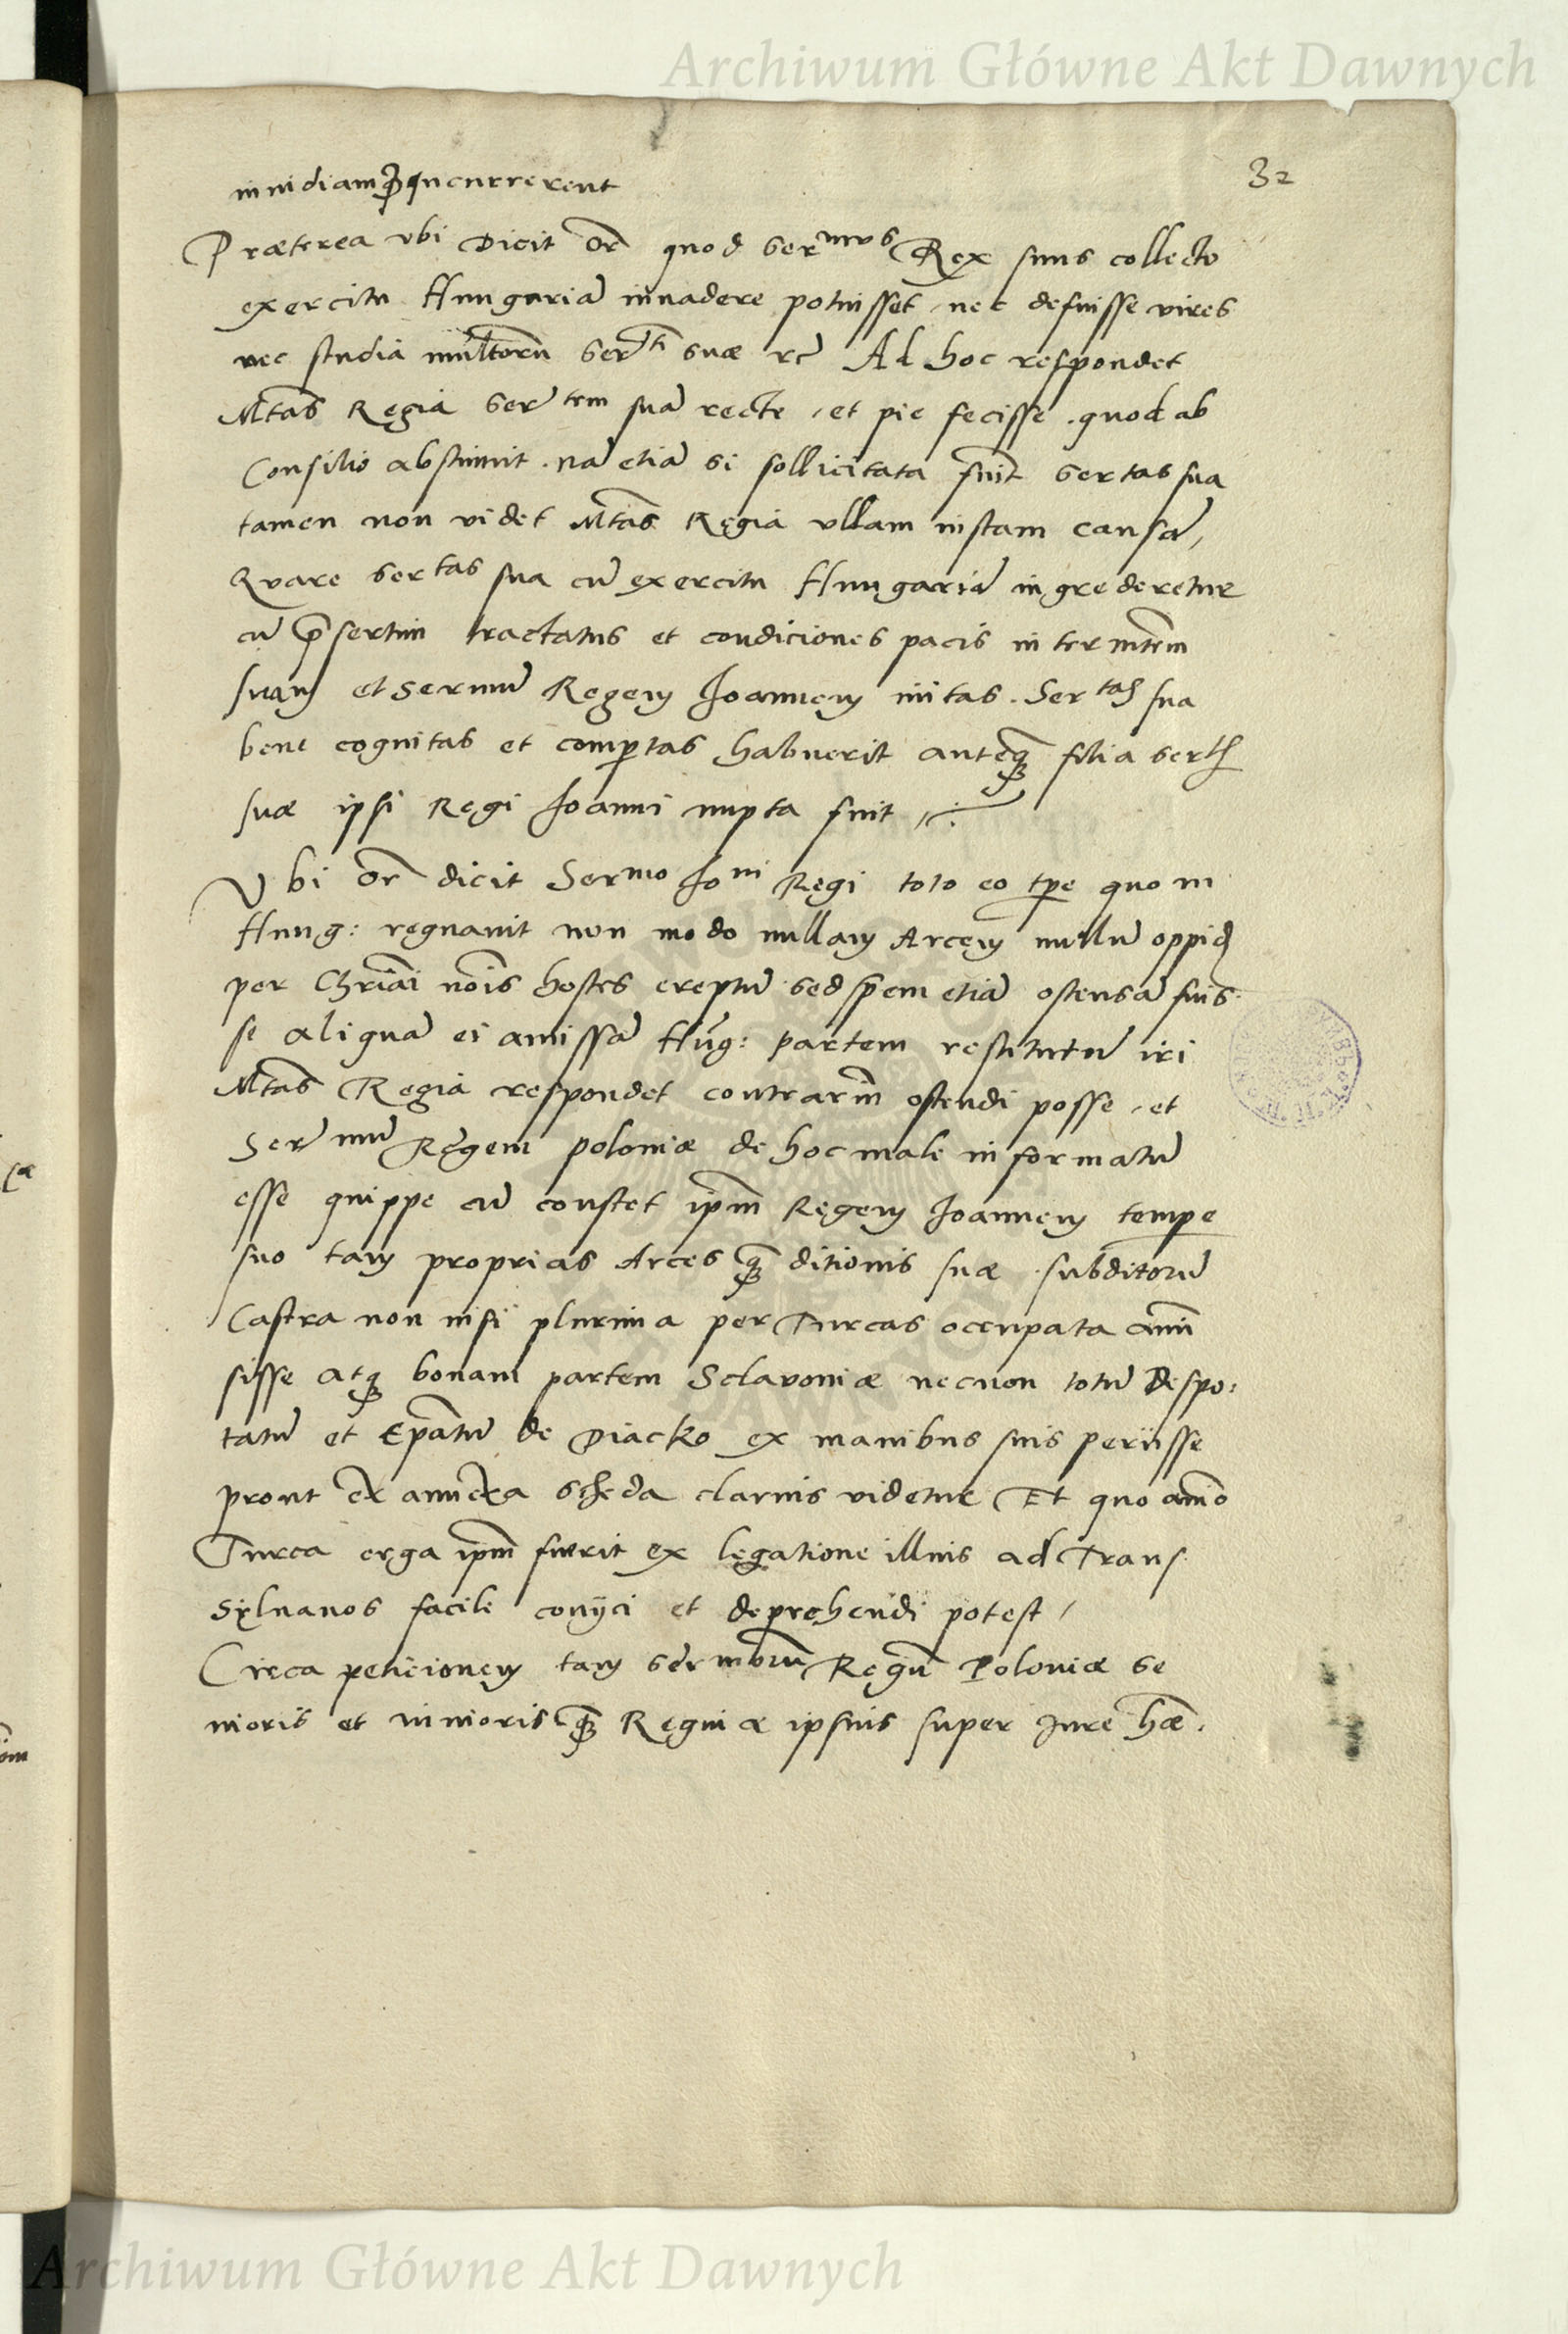 Archiwum Główne Akt Dawnych
32
inuidiam incurrerent
Præterea vbi Dicit Or̃ quod Sermus Rex suus collecto
exercitu Hungariã inuadere potuisset, nec defuisse vires
nec studia multorũ Sertĩ suæ rc̃ Ad hoc respondet
Mtas Regia Sertem suã recte, et pie fecisse, quod ab
Consilio abstinuit. nã etiã si sollicitata fuit Sertas sua
tamen non videt Mtas Regia vllam iustam causã,
Quare Sertas sua cũ exercitu Hungariã ingrederetur
cũ p̃sertim tractatus et condiciones pacis inter mtem
suam et Sermũ Regem Joannem initas. Sertas sua
bene cognitas et comptas habuerit anteq̃ filia Sertis
suæ ipsi Regi Joanni nupta fuit,
Vbi Or̃ dicit Sermo Joni Regi toto eo tpe quo in
Hung: regnauit non modo nullam Arcem nullũ oppid
per Chriãi nõis hostes ereptũ sed spem etiã ostensã fuis
se aliquã ei amissã Hũg: partem restitutũ iri
Mtas Regia respondet contrariũ ostendi posse, et
Sermũ Regem poloniæ de hoc male informatũ
esse quippe cũ constet ipm̃ Regem Joannem tempe
suo tam proprias Arces q̃ ditionis suæ subditorũ
Castra non nisi plurima per Turcas occupata ami
sisse atq bonam partem Sclavoniæ necnon totũ Despo:
tatũ et Ep̃atũ de Diacko ex manibus suis perijsse
prout ex annexa scheda clarius videtur Et quo aĩo
Turca erga ipm̃ fuerit ex legatione illius ad Trans
Sylvanos facile conijci et deprehendi potest,
Circa peticionem tam Sermorũ Regũ Poloniæ se
nioris et iunioris q̃ Reginæ ipsius super Jure hæ.
Archiwum Główne Akt Dawnych